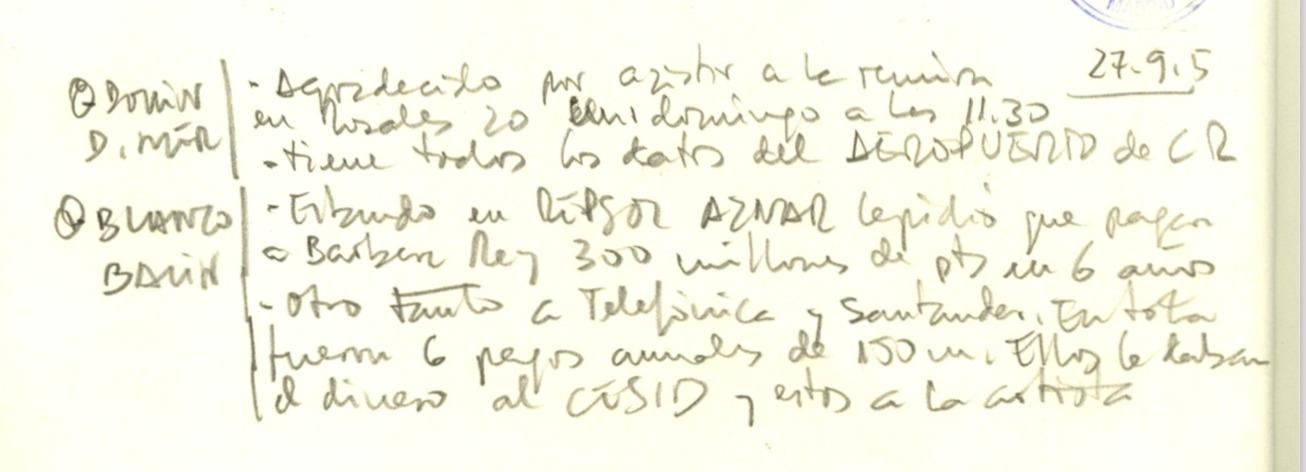 MADRID
27.9.15
Domin D. Mār | - Agradecido por asistir a la reunion
en Rosales 20 domingo a las 11.30
- tiene todos los datos del AEROPUERTO de CR
BLANCO BALIN | - Estando en REPSOL AZNAR le pidió que pagara
a Barbara Rey 300 millones de pts en 6 años
- Otro tanto a Telefónica y Santander. En total
fueron 6 pagos anuales de 150 m. Ellos le daban
el dinero al CESID y estos a la artista